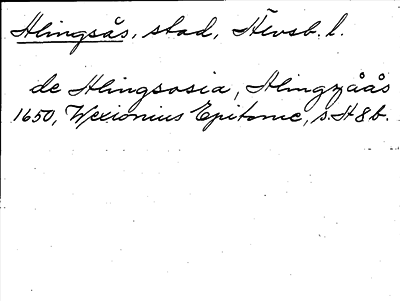 Alingsås, stad, Älvsb. l.
de Alingsosia, Alingzåås
1650, Wexionius Epitome, s. H 8 b.